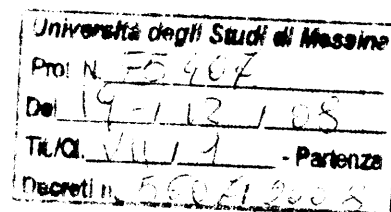 Università degli Studi di Messina
Prot. N. 75407
Del 19 / 12 / 08
Tit./Cl. VII / 1 - Partenza
Decreti n.